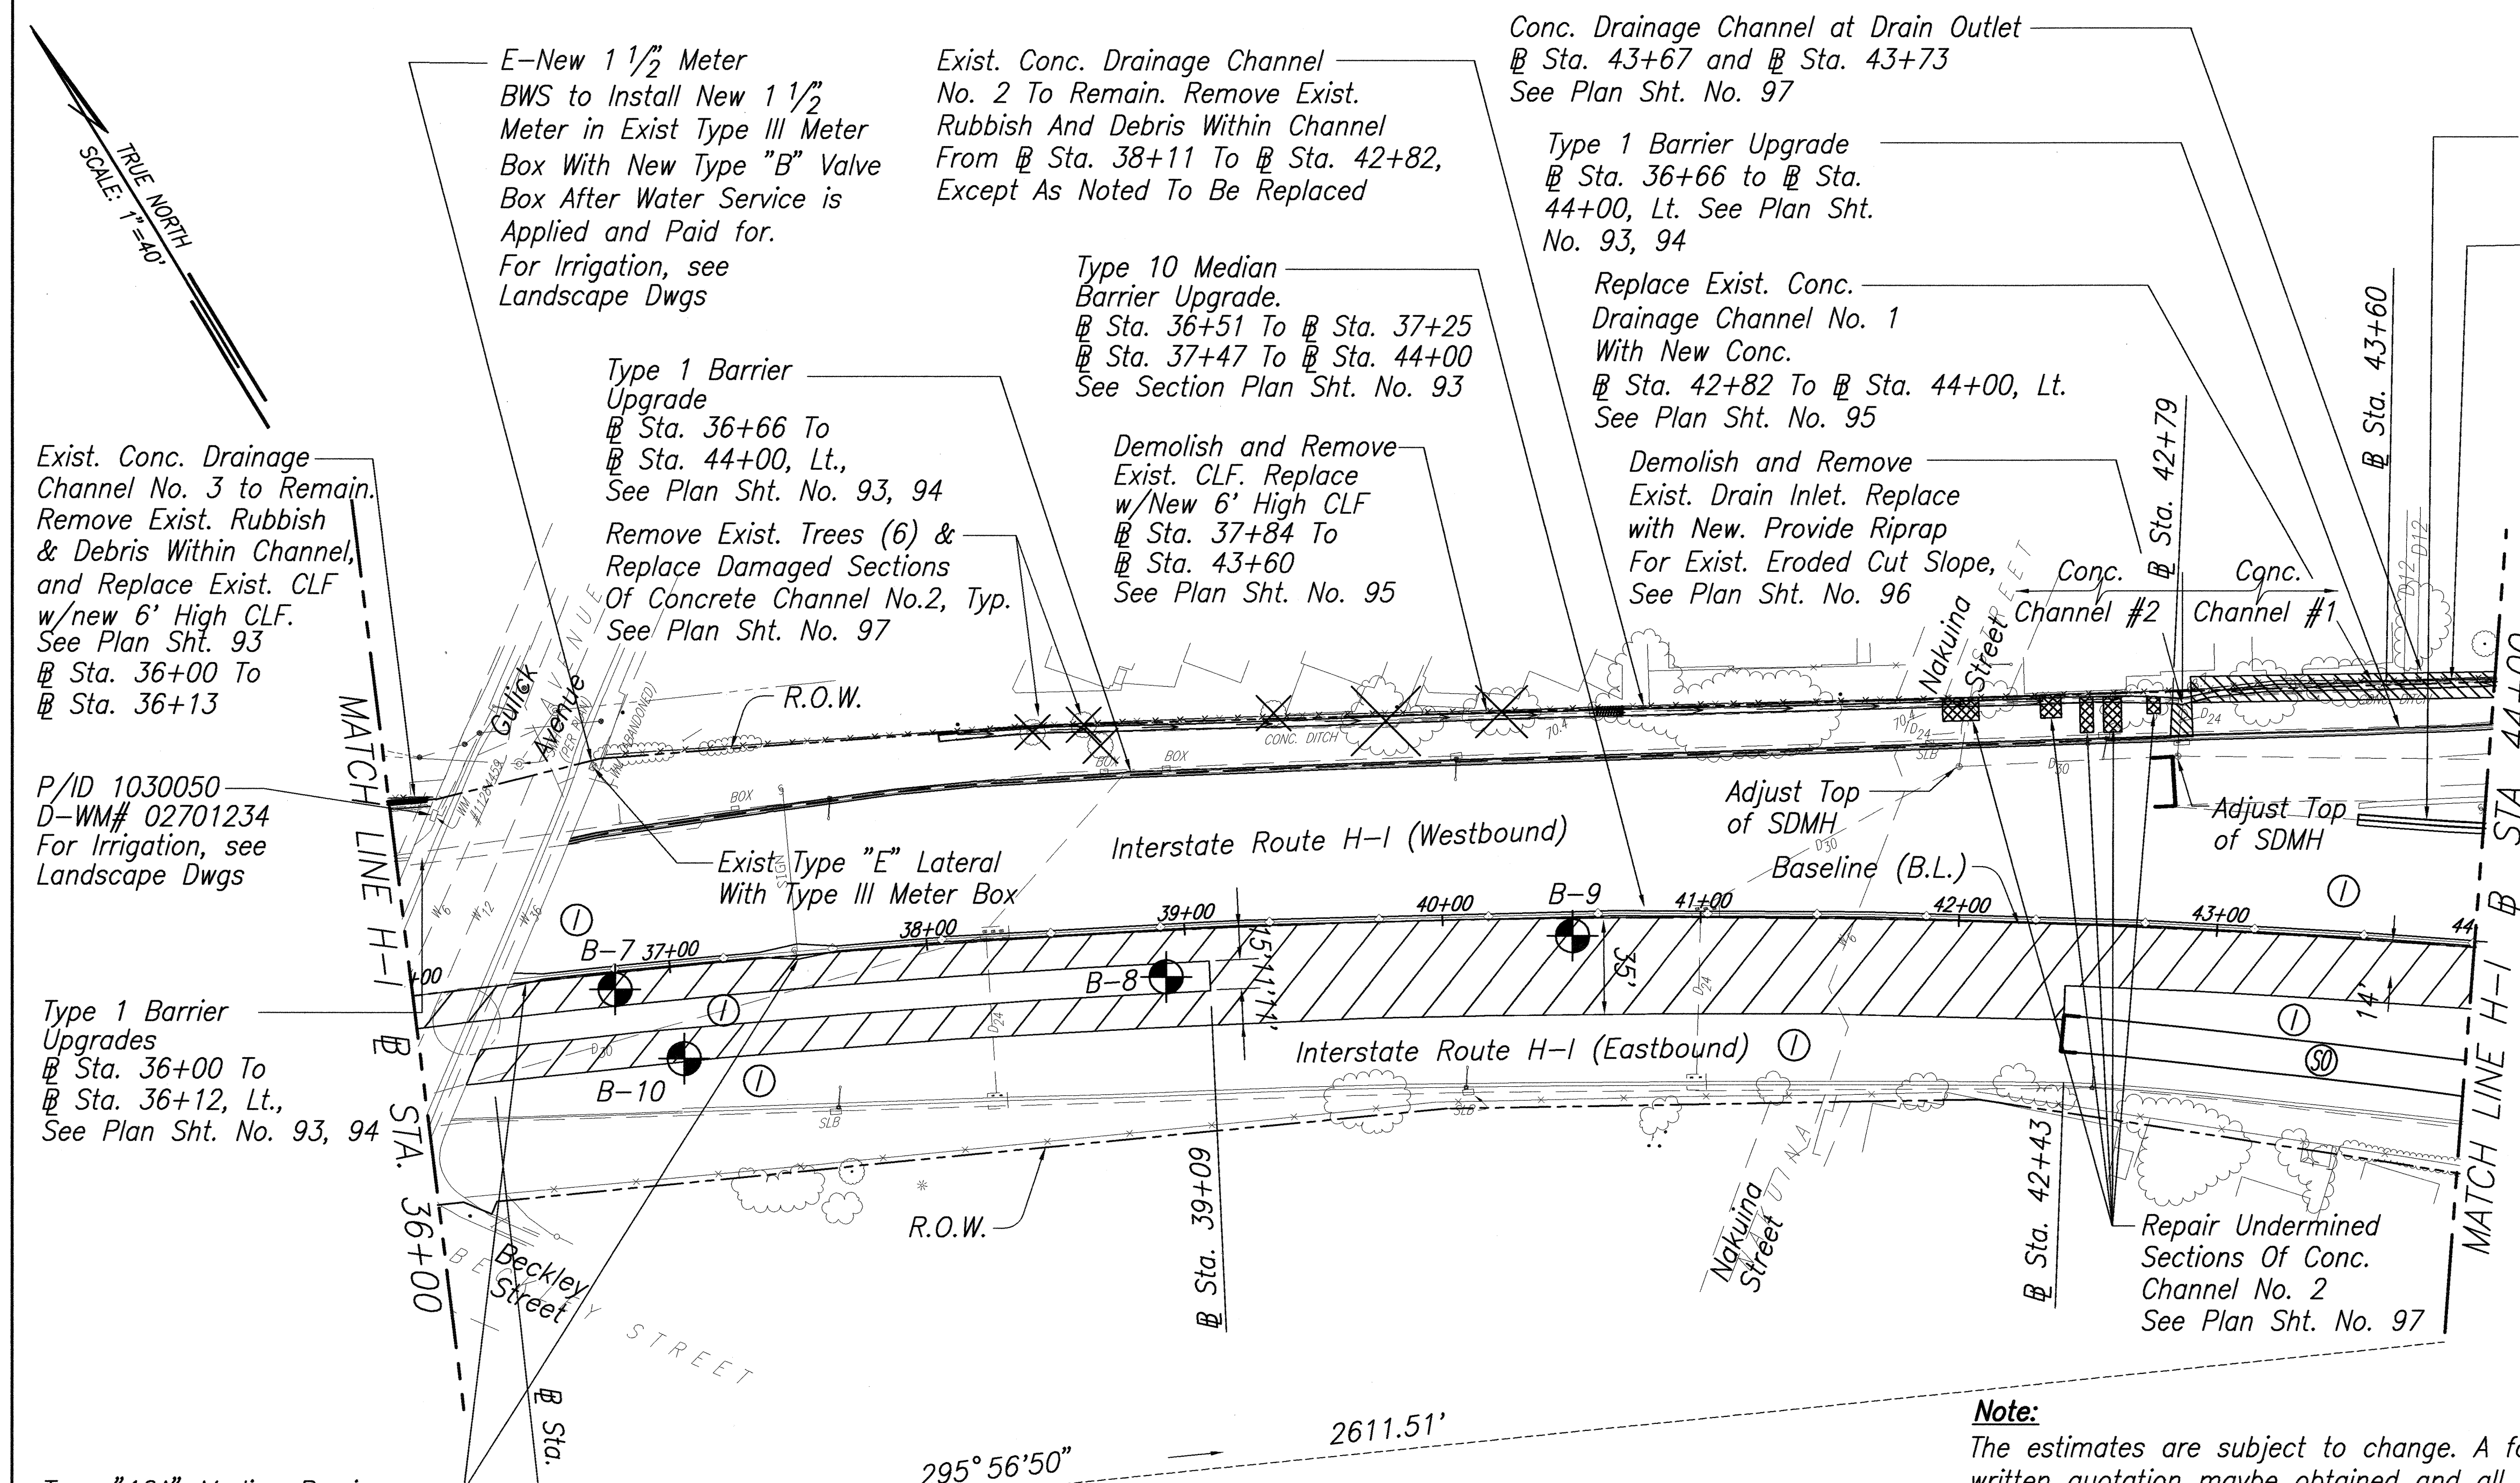 TRUE NORTH
SCALE: 1"=40'
E-New 1 1/2" Meter
BWS to Install New 1 1/2"
Meter in Exist Type III Meter
Box With New Type "B" Valve
Box After Water Service is
Applied and Paid for.
For Irrigation, see
Landscape Dwgs
Exist. Conc. Drainage Channel
No. 2 To Remain. Remove Exist.
Rubbish And Debris Within Channel
From BL Sta. 38+11 To BL Sta. 42+82,
Except As Noted To Be Replaced
Conc. Drainage Channel at Drain Outlet
BL Sta. 43+67 and BL Sta. 43+73
See Plan Sht. No. 97
Type 1 Barrier Upgrade
BL Sta. 36+66 to BL Sta.
44+00, Lt. See Plan Sht.
No. 93, 94
Type 10 Median
Barrier Upgrade.
BL Sta. 36+51 To BL Sta. 37+25
BL Sta. 37+47 To BL Sta. 44+00
See Section Plan Sht. No. 93
Replace Exist. Conc.
Drainage Channel No. 1
With New Conc.
BL Sta. 42+82 To BL Sta. 44+00, Lt.
See Plan Sht. No. 95
Type 1 Barrier
Upgrade
BL Sta. 36+66 To
BL Sta. 44+00, Lt.,
See Plan Sht. No. 93, 94
Demolish and Remove
Exist. CLF. Replace
w/New 6' High CLF
BL Sta. 37+84 To
BL Sta. 43+60
See Plan Sht. No. 95
Demolish and Remove
Exist. Drain Inlet. Replace
with New. Provide Riprap
For Exist. Eroded Cut Slope,
See Plan Sht. No. 96
BL Sta. 42+79
BL Sta. 43+60
D12 D12
Exist. Conc. Drainage
Channel No. 3 to Remain.
Remove Exist. Rubbish
& Debris Within Channel,
and Replace Exist. CLF
w/new 6' High CLF.
See Plan Sht. 93
BL Sta. 36+00 To
BL Sta. 36+13
Remove Exist. Trees (6) &
Replace Damaged Sections
Of Concrete Channel No.2, Typ.
See Plan Sht. No. 97
Conc.
Channel #2
Conc.
Channel #1
Nakuina
Street
STREET
Gulick
Avenue
AVENUE
R.O.W.
CONC. DITCH
70.4
70.4
D24
SLB
D30
D24
CONC. DITCH
BOX
BOX
BOX
P/ID 1030050
D-WM# 02701234
For Irrigation, see
Landscape Dwgs
WM
#11284459
Exist Type "E" Lateral
With Type III Meter Box
SIGN
Interstate Route H-I (Westbound)
Adjust Top
of SDMH
Adjust Top
of SDMH
D30
Baseline (B.L.)
W6
W12
W36
W6
B-7
B-8
B-9
B-10
+00
37+00
38+00
39+00
40+00
41+00
42+00
43+00
44
15'
11'
11'
35'
14'
D24
D24
D30
I
I
I
I
I
I
SO
Interstate Route H-I (Eastbound)
Type 1 Barrier
Upgrades
BL Sta. 36+00 To
BL Sta. 36+12, Lt.,
See Plan Sht. No. 93, 94
MATCH LINE H-I BL STA. 36+00
MATCH LINE H-I BL STA 44+00
SLB
SLB
R.O.W.
BL Sta. 39+09
BL Sta. 42+43
Nakuina
Street
NAKUINA
Beckley
Street
BECKLEY STREET
BL Sta.
Repair Undermined
Sections Of Conc.
Channel No. 2
See Plan Sht. No. 97
295°56'50"
2611.51'
Note:
The estimates are subject to change. A
written quotation maybe obtained and all